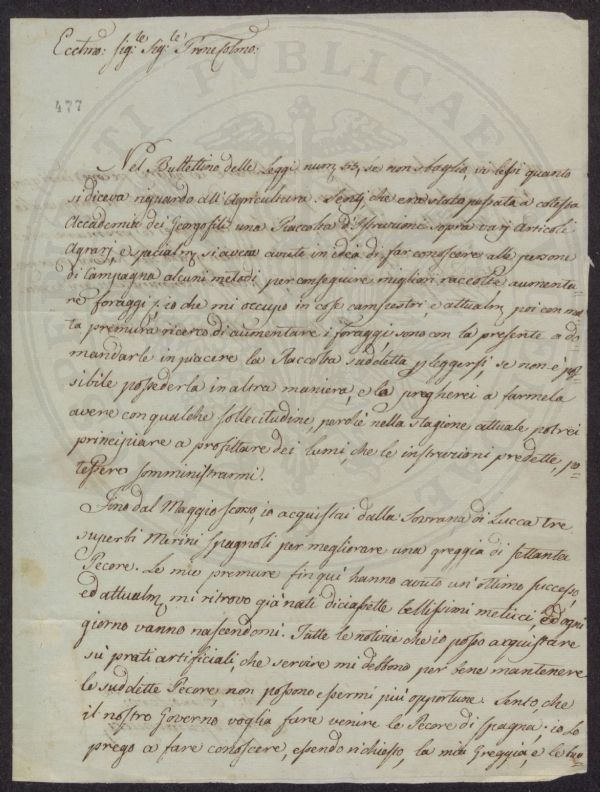 Ecclmo: Sig:re Sig:re Prone Colmo:
477
PVBLICAE
Nel Bullettino delle Leggi num. 55, se non sbaglio, vi lessi quanto
si diceva riguardo all'Agricultura: Sentj, che era stata passata a cotesta
Accademia dei Georgofili una Raccolta d'Istruzione sopra varj articoli
Agrarj, e specialm. si aveva avuto in idea di far conoscere alle persone
di Campagna alcuni metodi per conseguire migliori raccolte aumenta=
re foraggi; io che mi occupo in cose campestri, e attualm. poi con mol=
ta premura ricerco di aumentare i foraggi sono con la presente a do=
mandarle in piacere la Raccolta suddetta p. leggersi se non è pos=
sibile possederla in altra maniera, e la pregherei a farmela
avere con qualche sollecitudine, perché nella stagione attuale potrei
principiare a profittare dei lumi, che le instruzioni predette, po=
tessero somministrarmi.
Fino dal Maggio scorso, io acquistai dalla Sovrana di Lucca tre
superbi Merini Spagnoli per megliorare una greggia di settanta
Pecore. Le mie premure fin qui hanno avuto un'ottimo successo,
ed attualm. mi ritrovo già nati diciassette bellissimi meticci, ed ogni
giorno vanno nascendomi. Tutte le notizie che io posso acquistare
su' prati artificiali, che servire mi debbono per bene mantenere
le suddette Pecore, non possono essermi più opportune. Sento, che
il nostro Governo voglia fare venire le Pecore di Spagna; io lo
prego a fare conoscere, essendo richiesto, la mia Greggia, e le